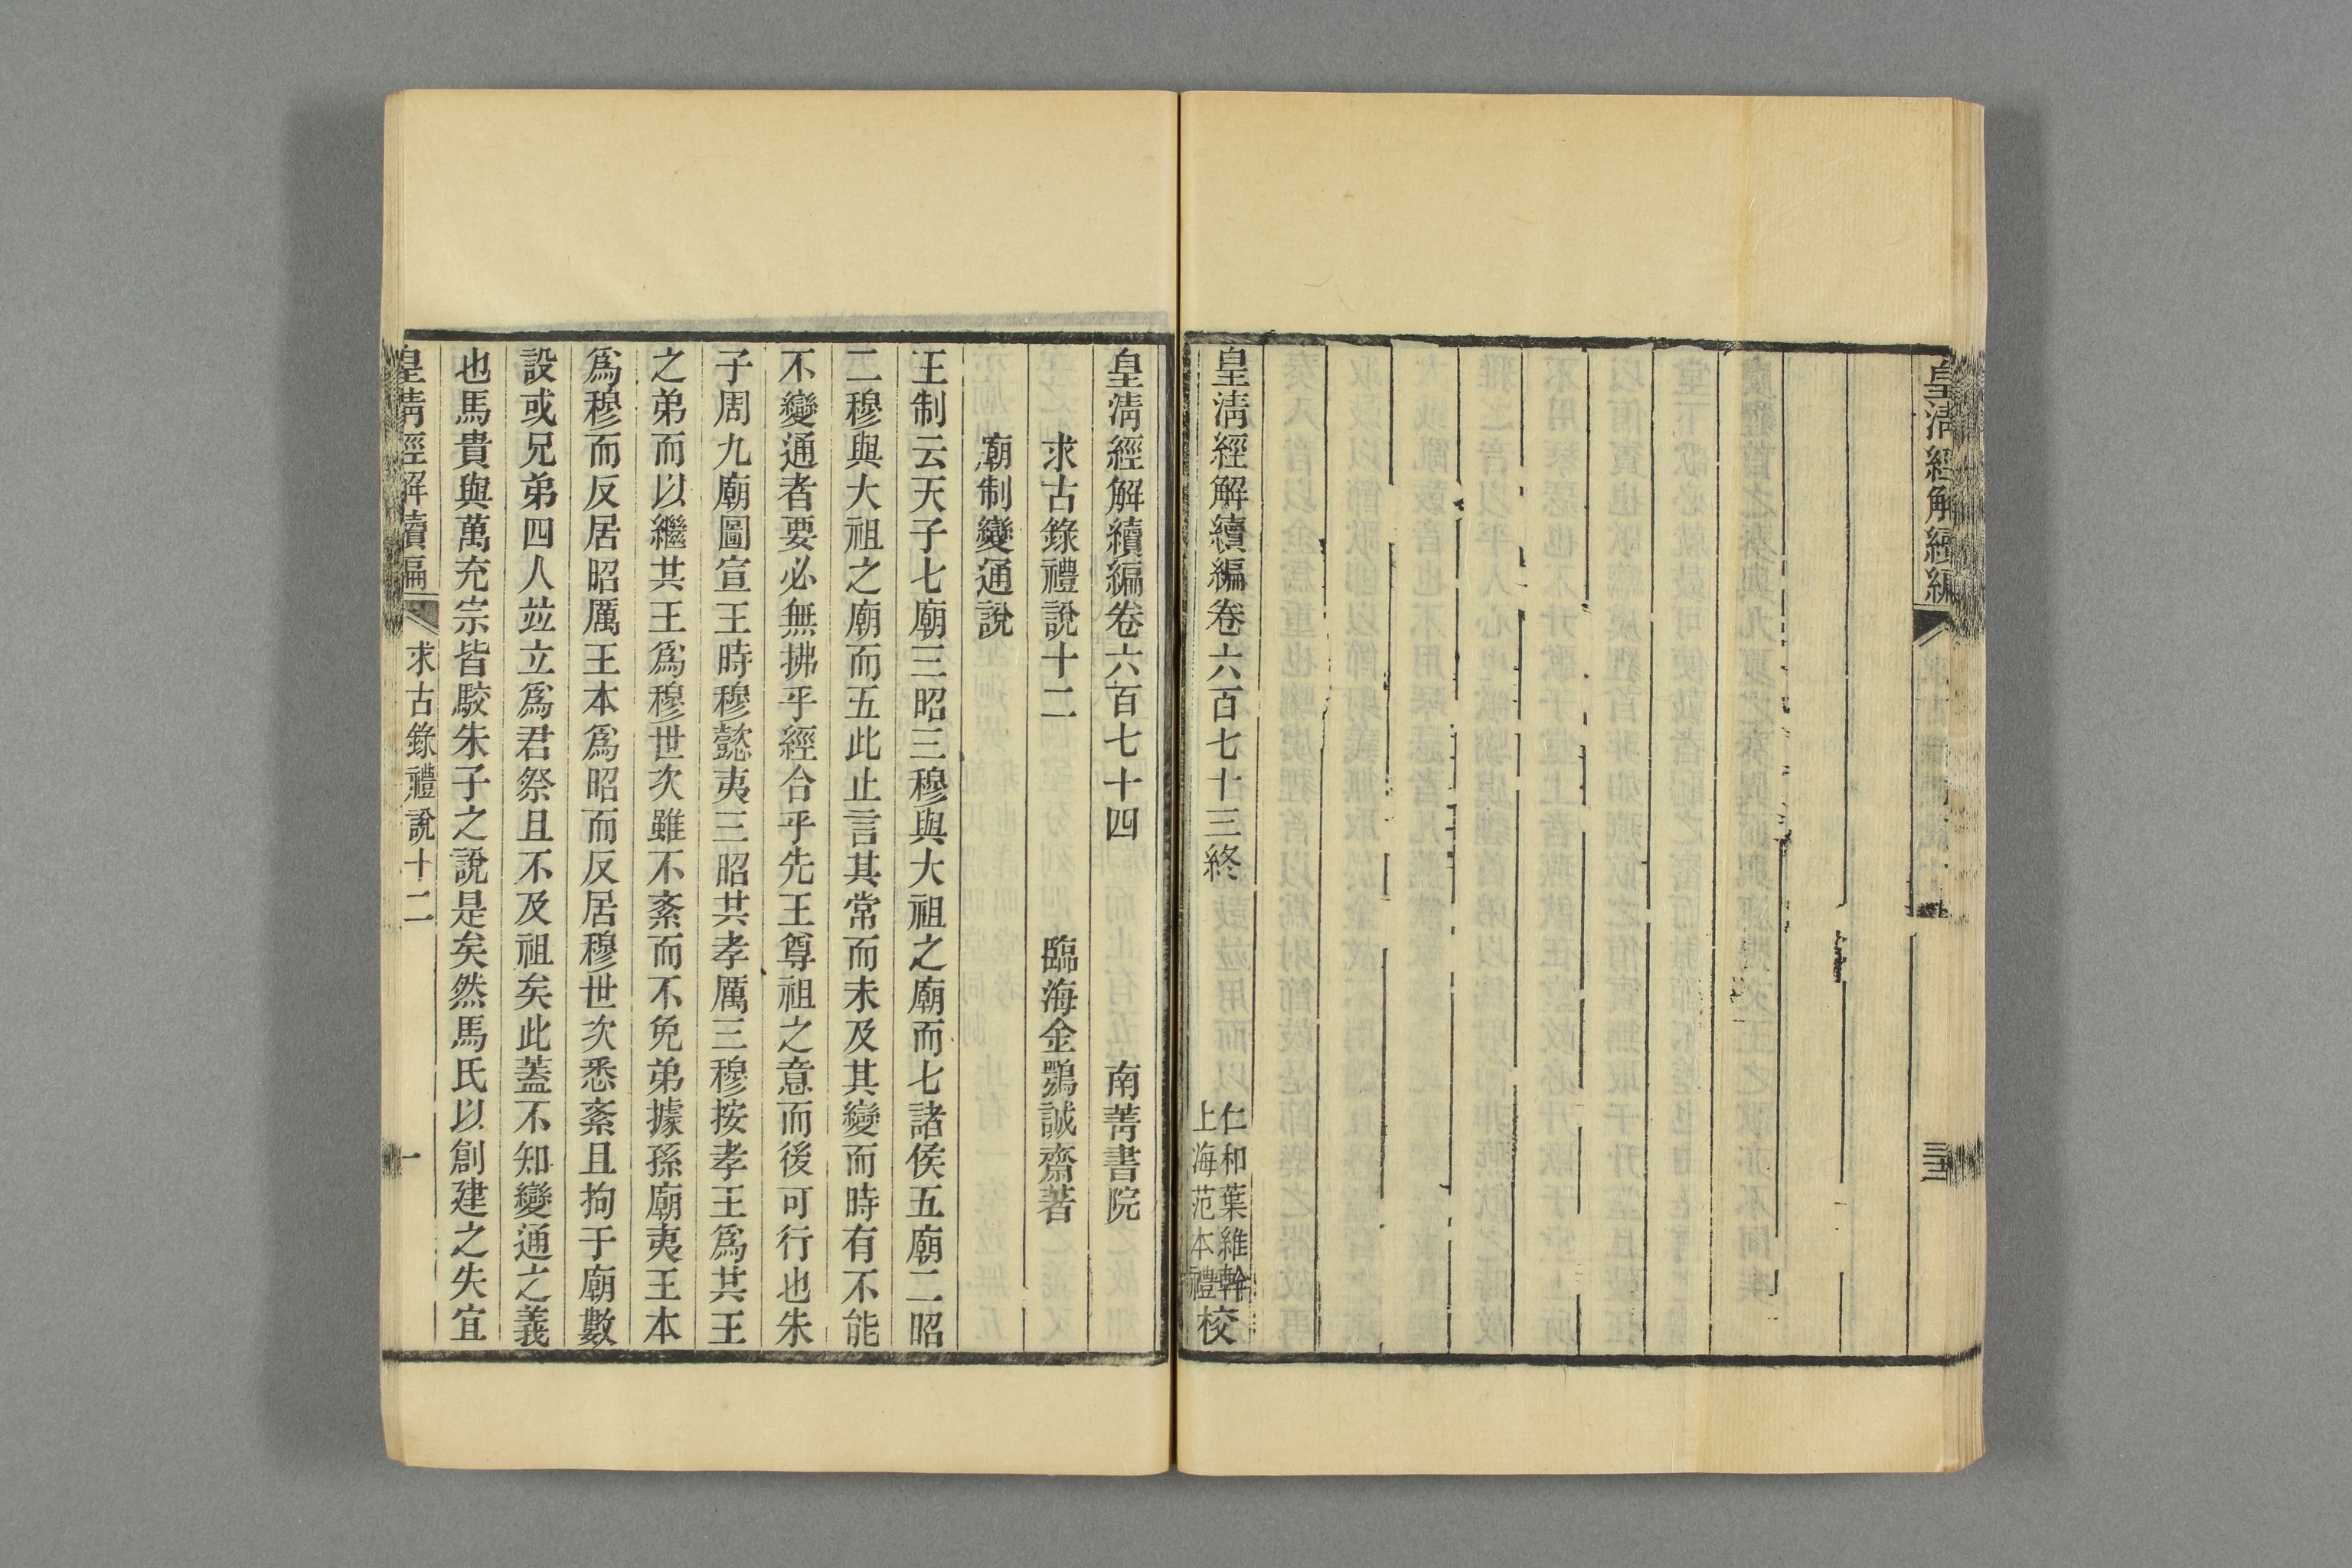 皇清經解續編
三
皇清經解續編卷六百七十三終
仁和葉維幹
上海范本禮
校
皇清經解續編卷六百七十四 南菁書院
求古錄禮說十二 臨海金鶚誠齋著
廟制變通說
王制云天子七廟三昭三穆與大祖之廟而七諸侯五廟二昭
二穆與大祖之廟而五此止言其常而未及其變而時有不能
不變通者要必無拂乎經合乎先王尊祖之意而後可行也朱
子周九廟圖宣王時穆懿夷三昭共孝厲三穆按孝王爲共王
之弟而以繼其王爲穆世次雖不紊而不免弟據孫廟夷王本
爲穆而反居昭厲王本爲昭而反居穆世次悉紊且拘于廟數
設或兄弟四人竝立爲君祭且不及祖矣此蓋不知變通之義
也馬貴與萬充宗皆駮朱子之說是矣然馬氏以創建之失宜
皇清經解續編 求古錄禮說十二 一